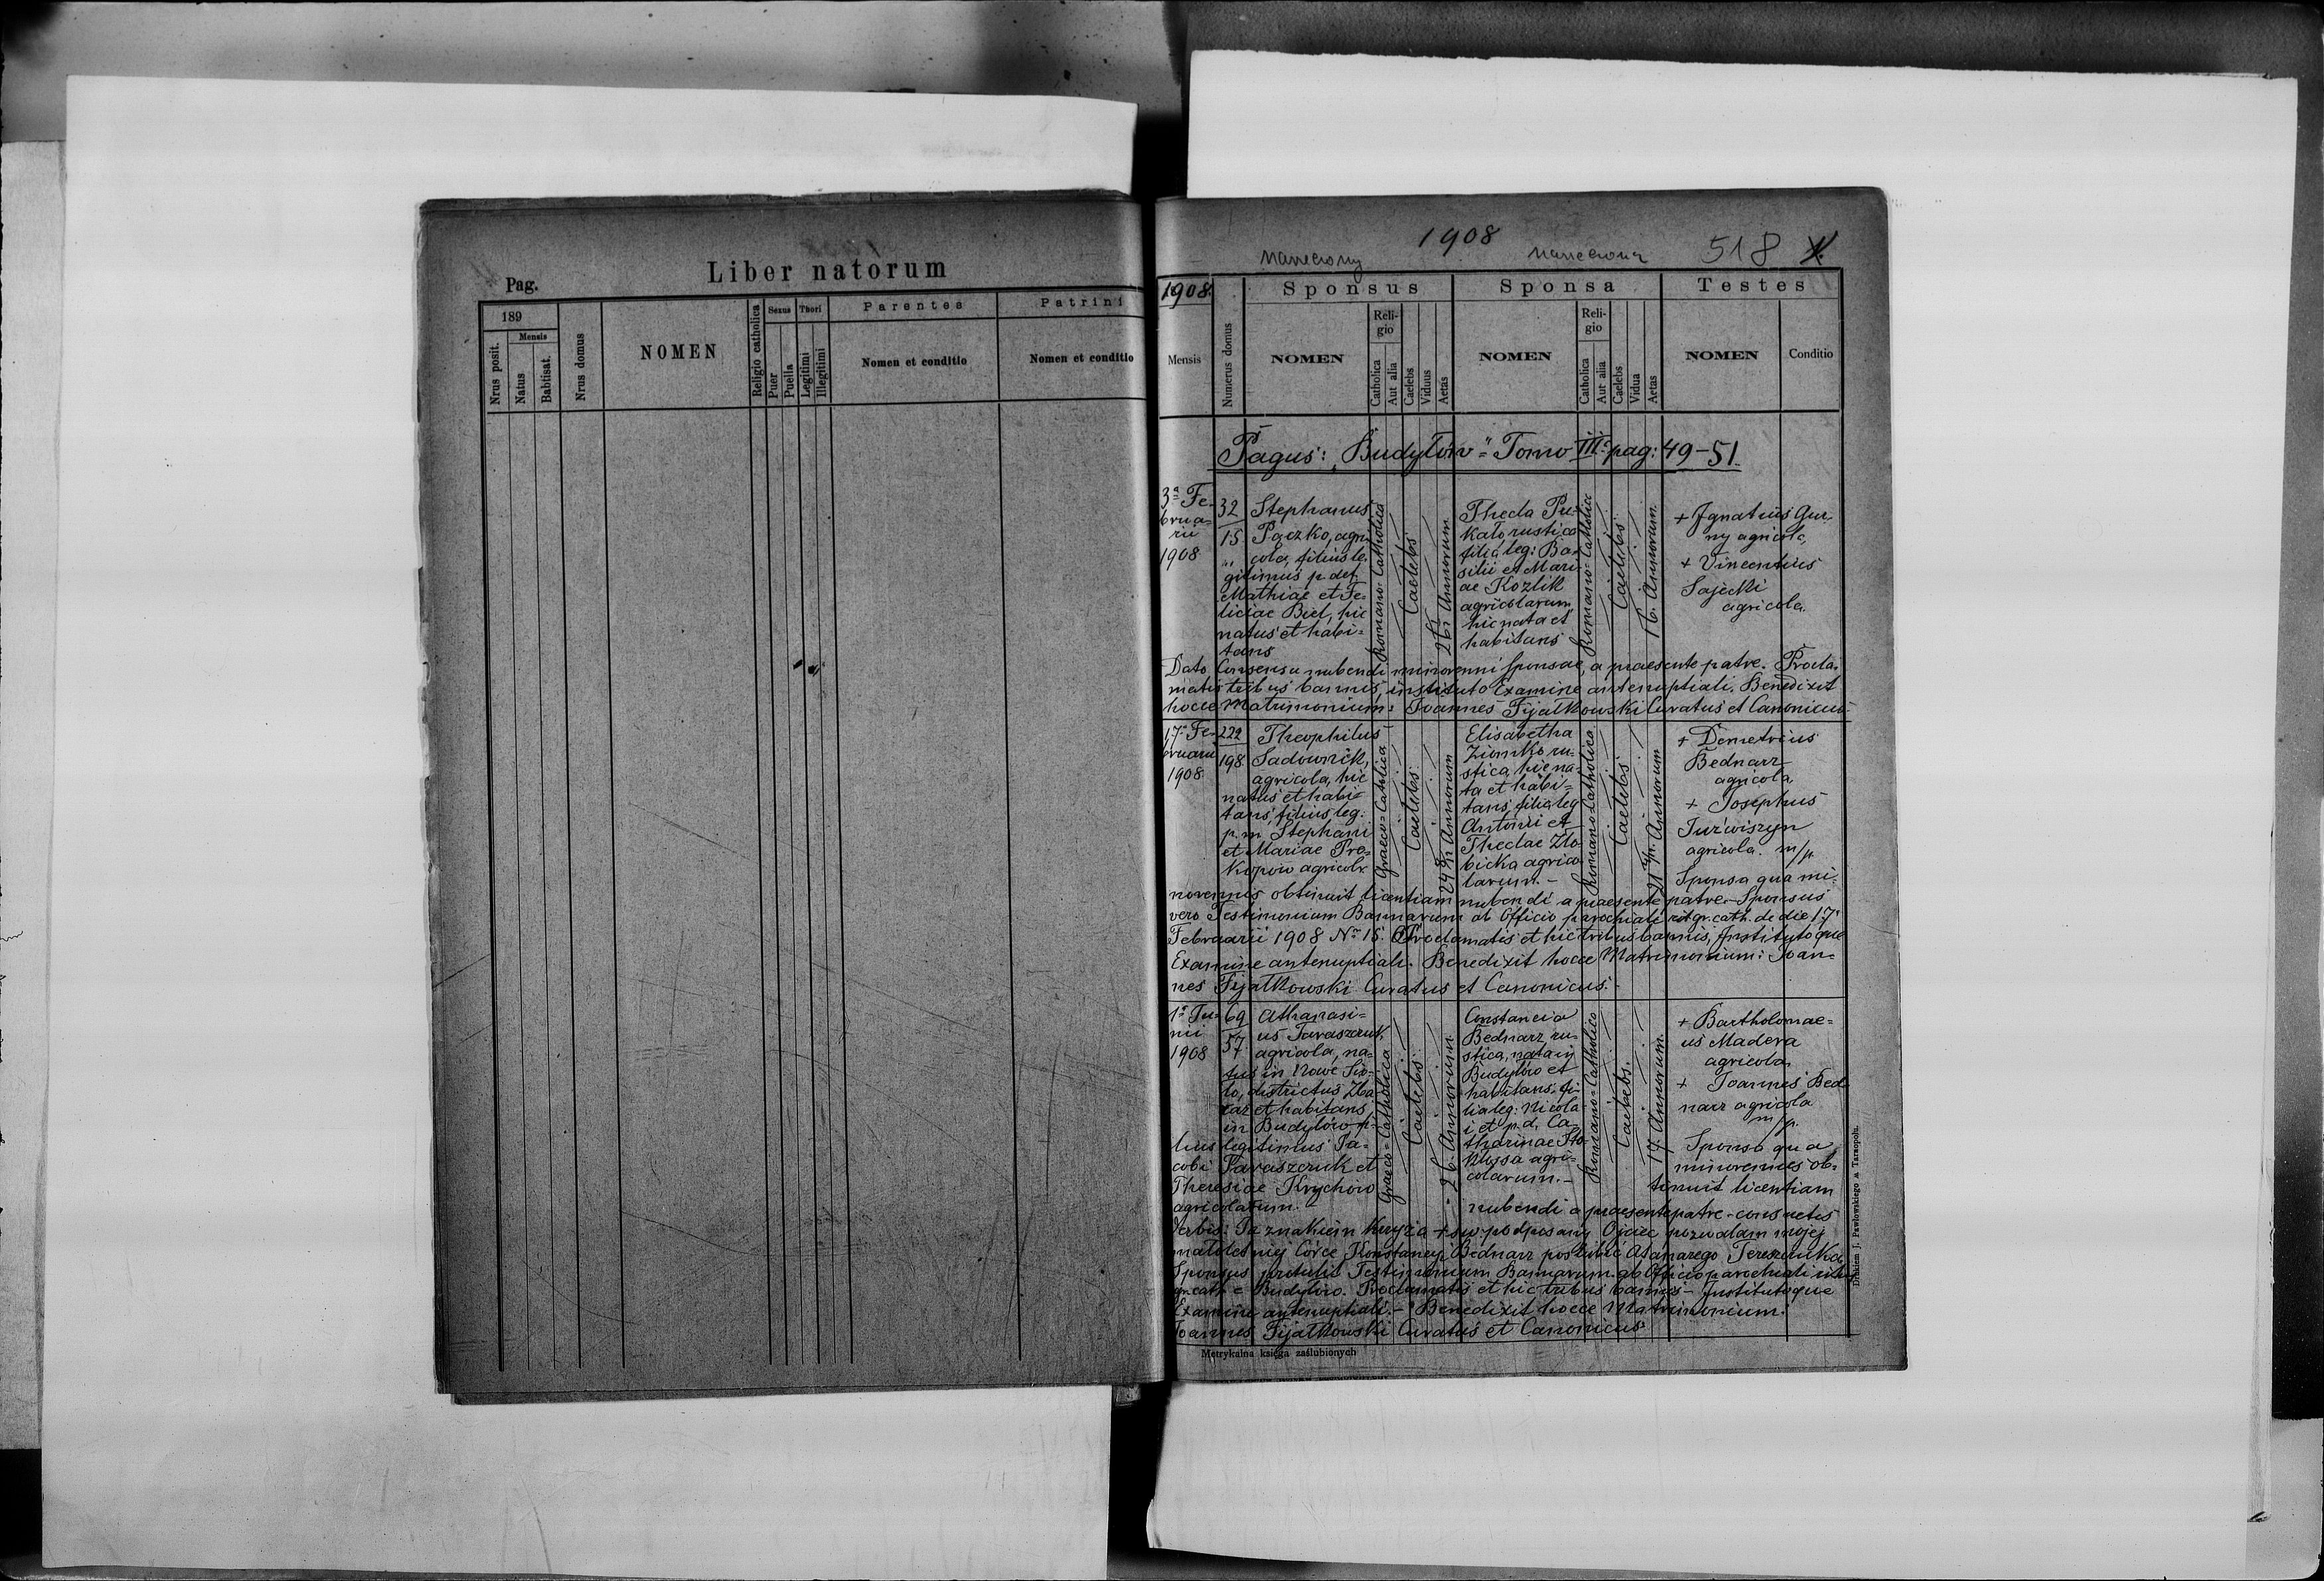 Liber natorum
Pag.
189
Nrus posit.
Mensis
Natus
Babtisat.
Nrus domus
NOMEN
Religio catholica
Sexus
Puer
Puella
Thori
Legitimi
Illegitimi
Parentes
Nomen et conditio
Patrini
Nomen et conditio
1908
518
1908.
Mensis
Numerus domus
Sponsus
NOMEN
Religio
Catholica
Aut alia
Caelebs
Viduus
Aetas
Sponsa
NOMEN
Religio
Catholica
Aut alia
Caelebs
Vidua
Aetas
Testes
NOMEN
Conditio
Pagus: "Budyłów" Tomo III. pag: 49-51.
3a Fe-
brua-
rii
1908
32
15
Stephanus
Pączko, agri
cola, filius le-
gitimus p. def.
Mathiae et Fe-
liciae Biel, hic
natus et habi-
tans
Romano-Catholica
Caelebs
26. Annorum
Thecla Pu-
kało rustica
filia leg: Ba-
silii et Mari-
ae Kozlik
agricolarum
hic nata et
habitans
Romano-Catholica
Caelebs
16. Annorum.
+ Ignatius Gur-
ny agricola,
+ Vincentius
Sajecki
agricola.
Dato Consensu nubendi minorenni Sponsae, a praesente patre. Procla-
matis tribus bannis, instituto Examine antenuptiali. Benedixit
hocce Matrimonium: Joannes Fijałkowski Curatus et Canonicus.
17. Fe-
bruarii
1908
222
198
Theophilus
Sadownik,
agricola, hic
natus et habi-
tans, filius leg.
p. m. Stephani
et Mariae Pro-
kopów agricolr.
Graeco-Catholica
Caelebs
Annorum
Elisabetha
Ziomko ru-
stica, hic na-
ta et habi-
tans, filia leg
Antonii et
Theclae Zło-
bicka agrico-
larum.-
Romano-Catholica
Caelebs
Annorum
+ Demetrius
Bednarz
agricola
+ Josephus
Juźwiszyn
agricola. m/p
Sponsa qua mi-
norennis obtinuit licentiam nubendi a praesente patre - Sponsus
vero Testimonium Bannorum ab Officio parochiali rit gr. cath. de die 17.
Februarii 1908 Nr 15. Proclamatis et hic tribus bannis, Institutoque
Examine antenuptiali. Benedixit hocce Matrimonium: Joan-
nes Fijałkowski Curatus et Canonicus.
1a Ju-
nii
1908
69
57
Athanasi-
us Taraszczuk,
agricola, na-
tus in Nowe Sio-
ło, districtus Zba
raz et habitans
in Budyłów fi-
lius legitimus Ja-
cobi Taraszczuk et
Theresiae Hrychów
agricolarum.-
Graeco-Catholica
Caelebs
26. Annorum
Constancia
Bednarz, ru-
stica, nata in
Budyłów et
habitans, fi-
lia leg: Nicola
i et p. d. Ca-
tharinae Sto-
kłosa agri-
colarum.-
Romano-Catholica
Caelebs.
17. Annorum.
+ Bartholomae-
us Madera
agricola
+ Joannes Bed
narz agricola
m/p.
Sponsa qua
minorennes ob-
tinuit licentiam
nubendi a praesente patre - consuetis
verbis: Ja znakiem Krzyża + św. podpisany Ojciec pozwalam mojej
małoletniej córce Konstancyi Bednarz poślubić Atanazego Tereszczuka,
Sponsus protulit Testimonium Bannorum ab Officio parochiali ritus
gr. cath e Budyłów. Proclamatis et hic tribus bannis - Institutoque
Examine antenuptiali.- Benedixit hocce Matrimonium:
Joannes Fijałkowski Curatus et Canonicus
Metrykalna księga zaślubionych
Drukiem J. Pawłowskiego w Tarnopolu.